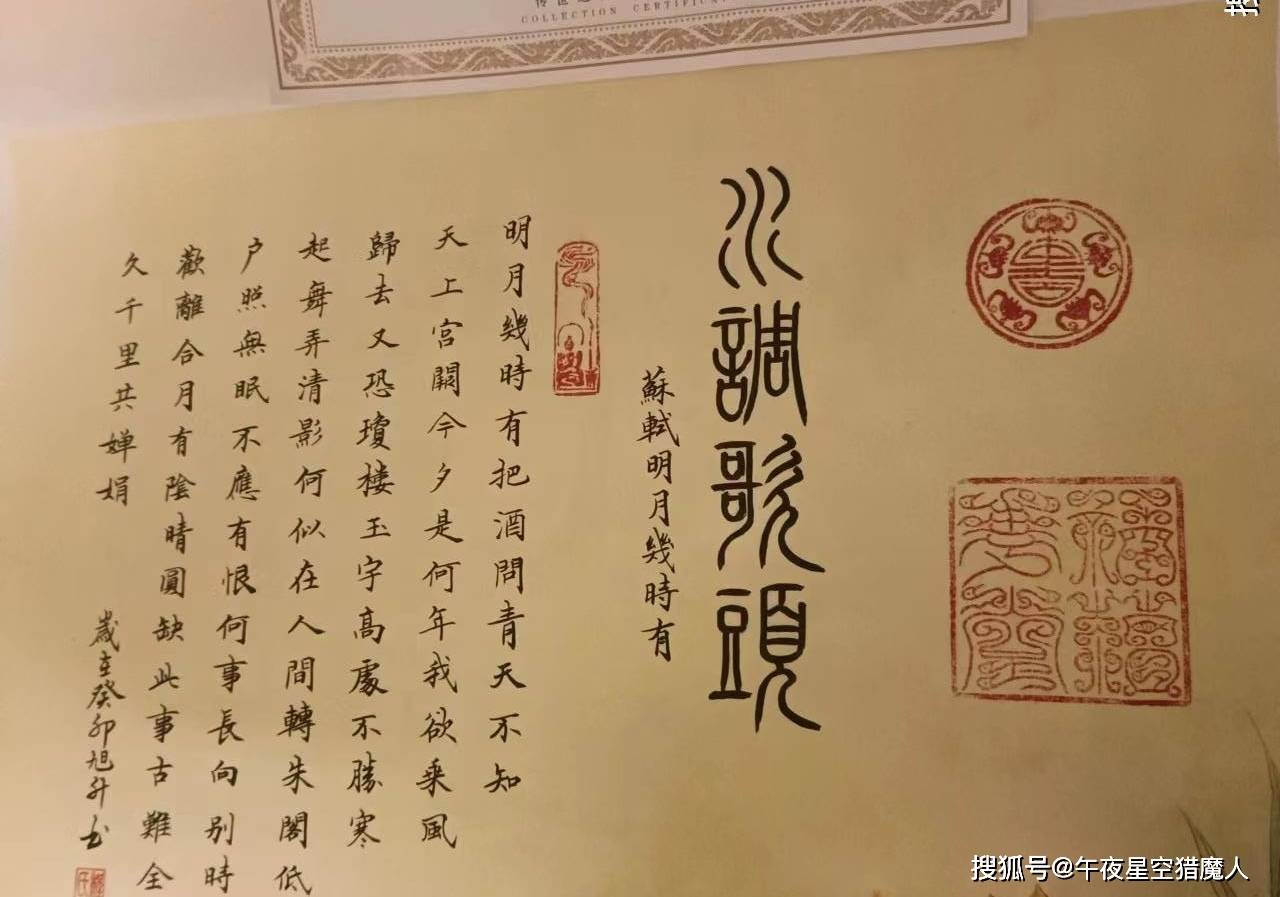 COLLECTION CERTIFICA
水調歌頭
蘇軾明月幾時有
明月幾時有把酒問青天不知
天上宮闕今夕是何年我欲乘風
歸去又恐瓊楼玉宇高處不勝寒
起舞弄清影何似在人間轉朱閣低
户照無眠不應有恨何事長向别時
歡離合月有陰晴圓缺此事古難全
久千里共婵娟
歲在癸卯旭升书
搜狐号@午夜星空猎魔人